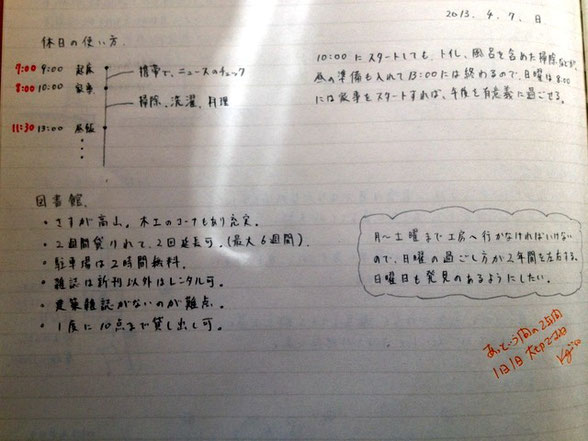 2013. 4. 7. 日
休日の使い方
7:00 9:00 起床
携帯で、ニュースのチェック
8:00 10:00 家事
掃除、洗濯、料理
11:30 13:00 昼飯
10:00 にスタートしても、トイレ、風呂を含めた掃除などが、
昼の準備も入れて13:00には終わるので、日曜は 8:00
には家事をスタートすれば、午后を有意義に過ごせる。
図書館
・さすが高山。木工のコーナーもあり充実。
・2週間借りれて、2回延長可。(最大6週間)
・駐車場は2時間無料。
・雑誌は新刊以外はレンタル可。
・建築雑誌がないのが難点。
・1度に10点まで貸し出し可。
月〜土曜まで工房へ行かなければいけない
ので、日曜の過ごし方が2年間を左右する。
日曜日も発見のあるようにしたい。
あっという間の2年間
1日1日